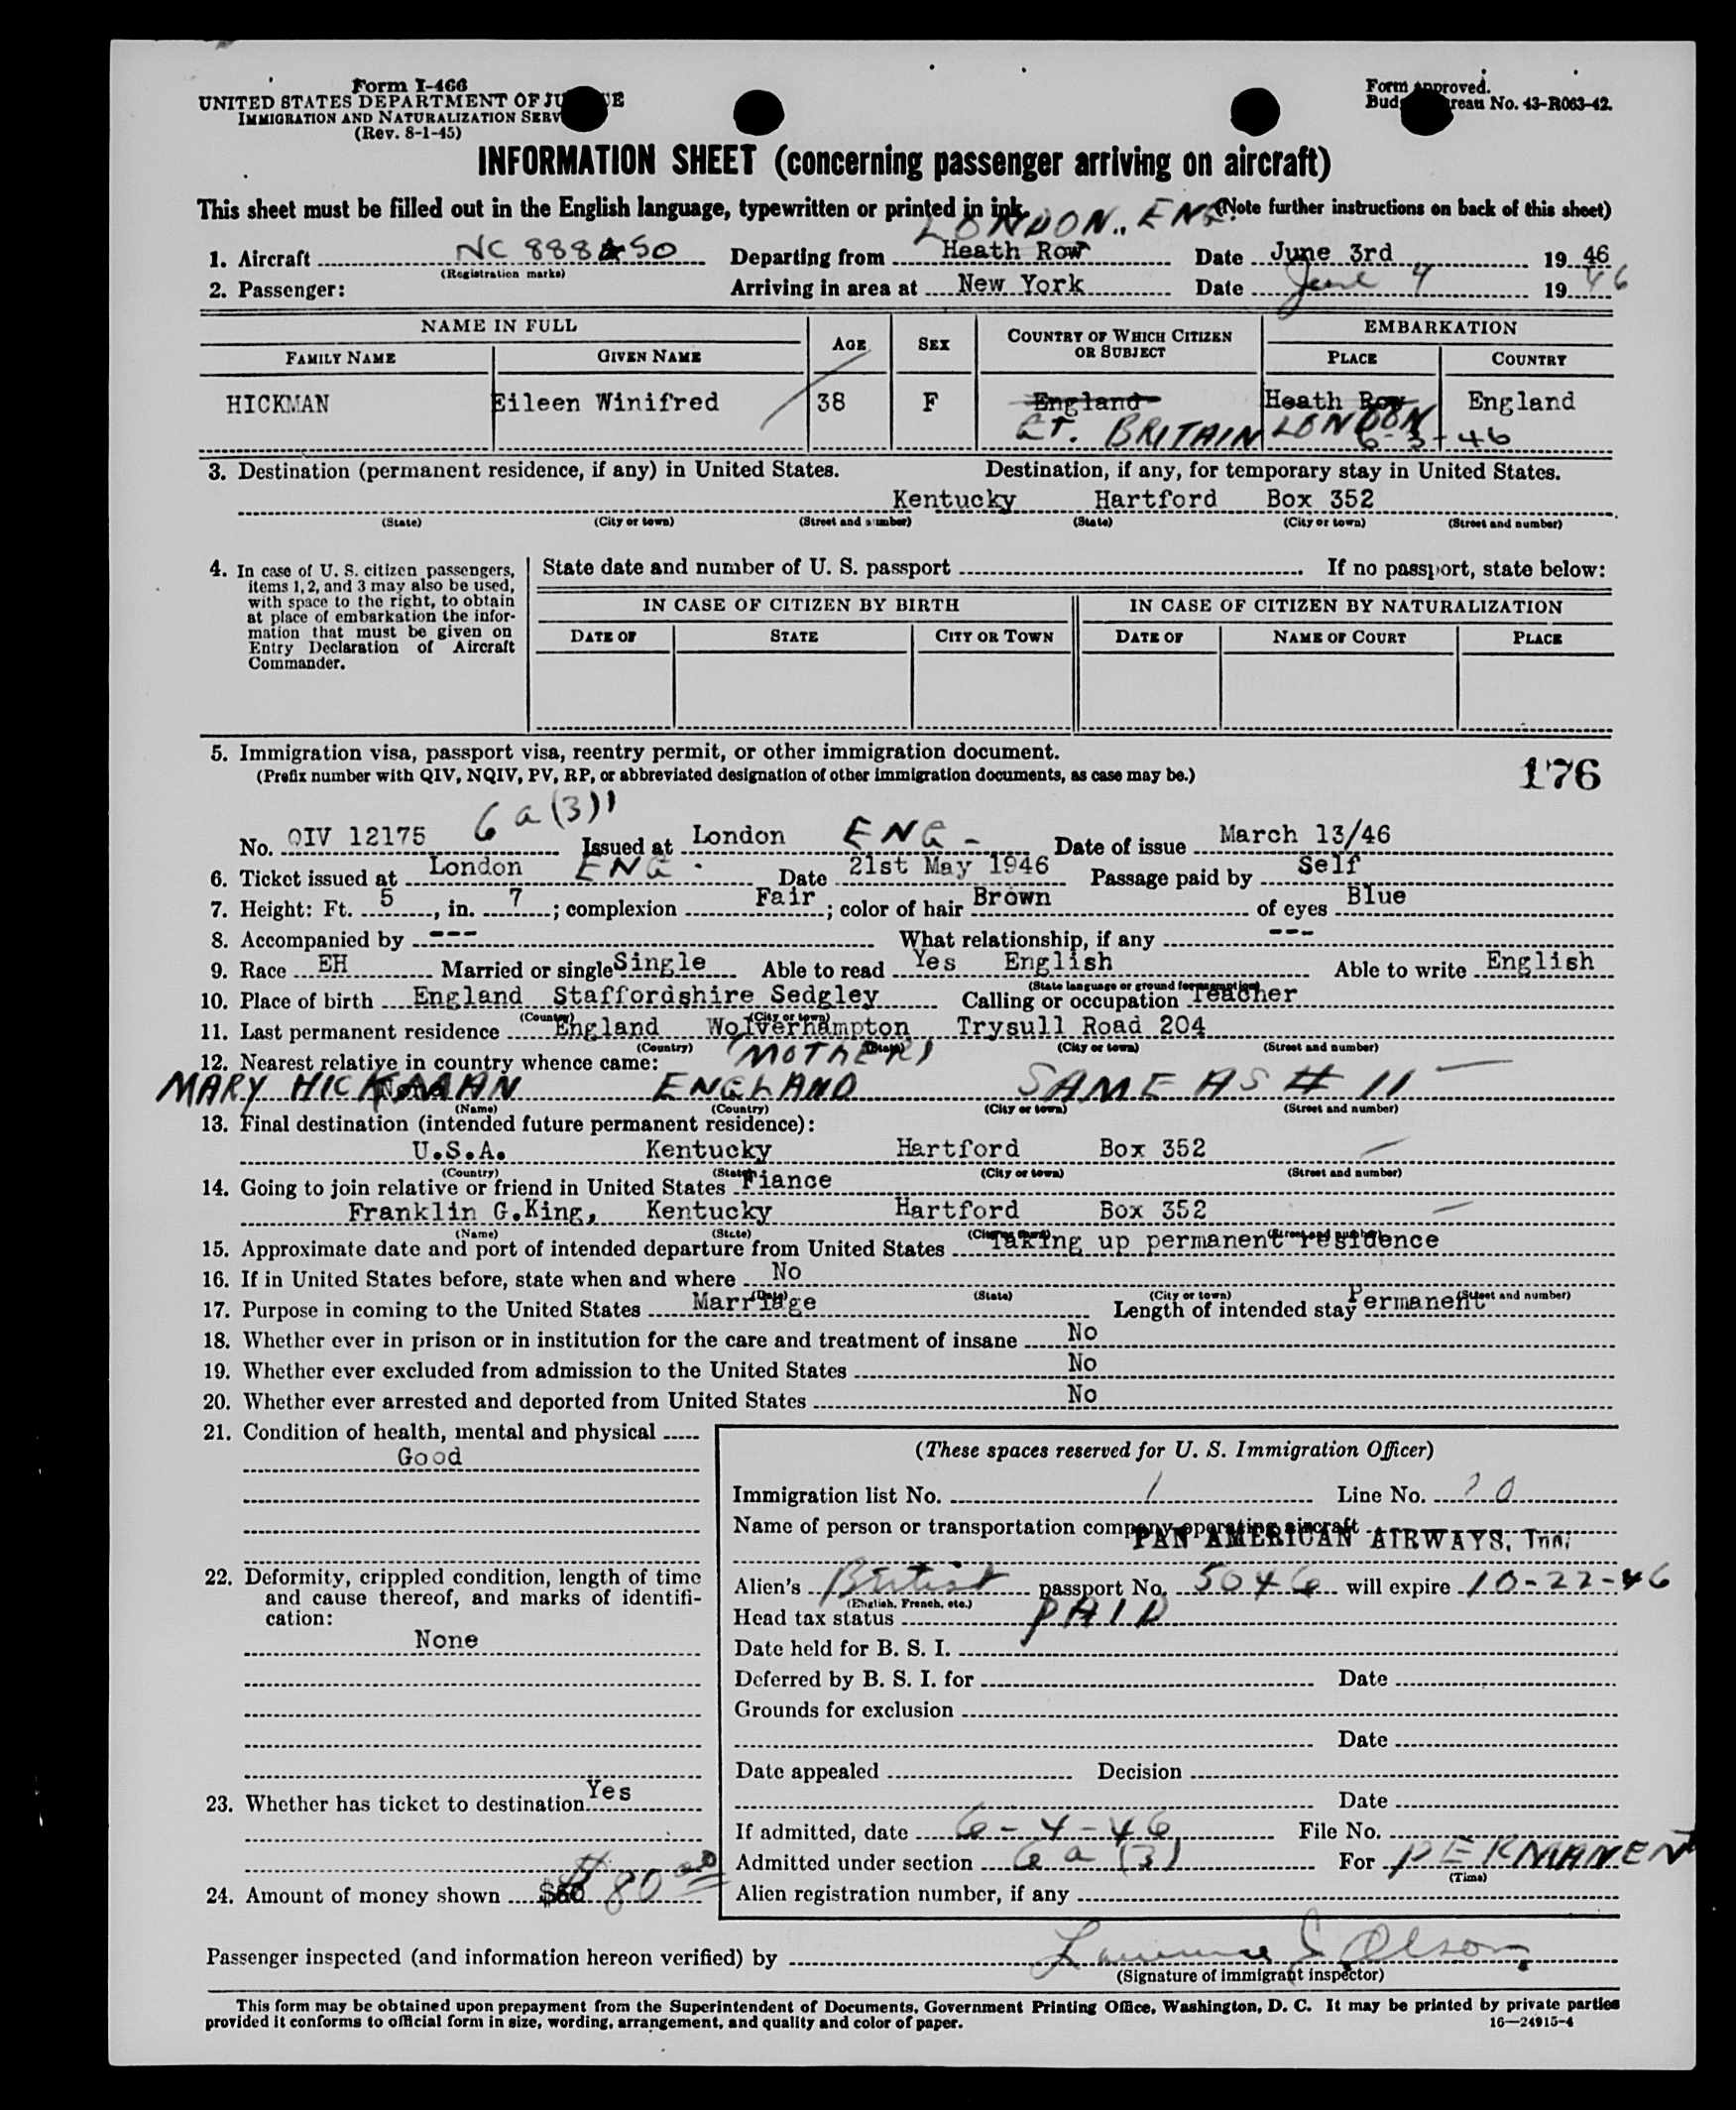 Form I-466
UNITED STATES DEPARTMENT OF JU   CE
IMMIGRATION AND NATURALIZATION SERV
(Rev. 8-1-45)
Form approved.
Bud   reau No. 43-R063-42.
INFORMATION SHEET (concerning passenger arriving on aircraft)
This sheet must be filled out in the English language, typewritten or printed in ink. (Note further instructions on back of this sheet)
LONDON., ENG.
1. Aircraft NC 88850 Departing from Heath Row Date June 3rd 19 46
(Registration marks)
2. Passenger: Arriving in area at New York Date June 4 19 46
NAME IN FULL AGE SEX COUNTRY OF WHICH CITIZEN OR SUBJECT EMBARKATION
FAMILY NAME GIVEN NAME PLACE COUNTRY
HICKMAN Eileen Winifred 38 F England Heath Row England
GT. BRITAIN LONDON
6-3-46
3. Destination (permanent residence, if any) in United States. Destination, if any, for temporary stay in United States.
Kentucky Hartford Box 352
(State) (City or town) (Street and number) (State) (City or town) (Street and number)
4. In case of U. S. citizen passengers, items 1, 2, and 3 may also be used, with space to the right, to obtain at place of embarkation the information that must be given on Entry Declaration of Aircraft Commander.
State date and number of U. S. passport . If no passport, state below:
IN CASE OF CITIZEN BY BIRTH IN CASE OF CITIZEN BY NATURALIZATION
DATE OF STATE CITY OR TOWN DATE OF NAME OF COURT PLACE
5. Immigration visa, passport visa, reentry permit, or other immigration document.
(Prefix number with QIV, NQIV, PV, RP, or abbreviated designation of other immigration documents, as case may be.)
176
6 a (3)
No. QIV 12175 Issued at London ENG - Date of issue March 13/46
6. Ticket issued at London ENG. Date 21st May 1946 Passage paid by Self
7. Height: Ft. 5, in. 7; complexion Fair; color of hair Brown of eyes Blue
8. Accompanied by --- What relationship, if any ---
9. Race EH Married or single Single Able to read Yes English Able to write English
(State language or ground for exemption)
10. Place of birth England Staffordshire Sedgley Calling or occupation Teacher
(Country) (City or town)
11. Last permanent residence England Wolverhampton Trysull Road 204
(Country) (State) (City or town) (Street and number)
12. Nearest relative in country whence came: (MOTHER)
MARY HICKMAN ENGLAND SAME AS # 11
(Name) (Country) (City or town) (Street and number)
13. Final destination (intended future permanent residence):
U.S.A. Kentucky Hartford Box 352
(Country) (State) (City or town) (Street and number)
14. Going to join relative or friend in United States Fiance
Franklin G.King, Kentucky Hartford Box 352
(Name) (State) (City or town) (Street and number)
15. Approximate date and port of intended departure from United States Taking up permanent residence
16. If in United States before, state when and where No
(Date) (State) (City or town) (Street and number)
17. Purpose in coming to the United States Marriage Length of intended stay Permanent
18. Whether ever in prison or in institution for the care and treatment of insane No
19. Whether ever excluded from admission to the United States No
20. Whether ever arrested and deported from United States No
21. Condition of health, mental and physical
Good
22. Deformity, crippled condition, length of time and cause thereof, and marks of identification:
None
23. Whether has ticket to destination Yes
24. Amount of money shown $80 $ 80 00
(These spaces reserved for U. S. Immigration Officer)
Immigration list No. 1 Line No. 0
Name of person or transportation company operating aircraft
PAN AMERICAN AIRWAYS, Inc.
Alien's British passport No. 5046 will expire 10-22-46
(English, French, etc.)
Head tax status PAID
Date held for B. S. I.
Deferred by B. S. I. for Date
Grounds for exclusion
Date
Date appealed Decision
Date
If admitted, date 6-4-46 File No.
Admitted under section 6 a (3) For PERMANENT
(Time)
Alien registration number, if any
Passenger inspected (and information hereon verified) by Lawrence S Olson
(Signature of immigrant inspector)
This form may be obtained upon prepayment from the Superintendent of Documents, Government Printing Office, Washington, D. C. It may be printed by private parties
provided it conforms to official form in size, wording, arrangement, and quality and color of paper.
16—24915-4